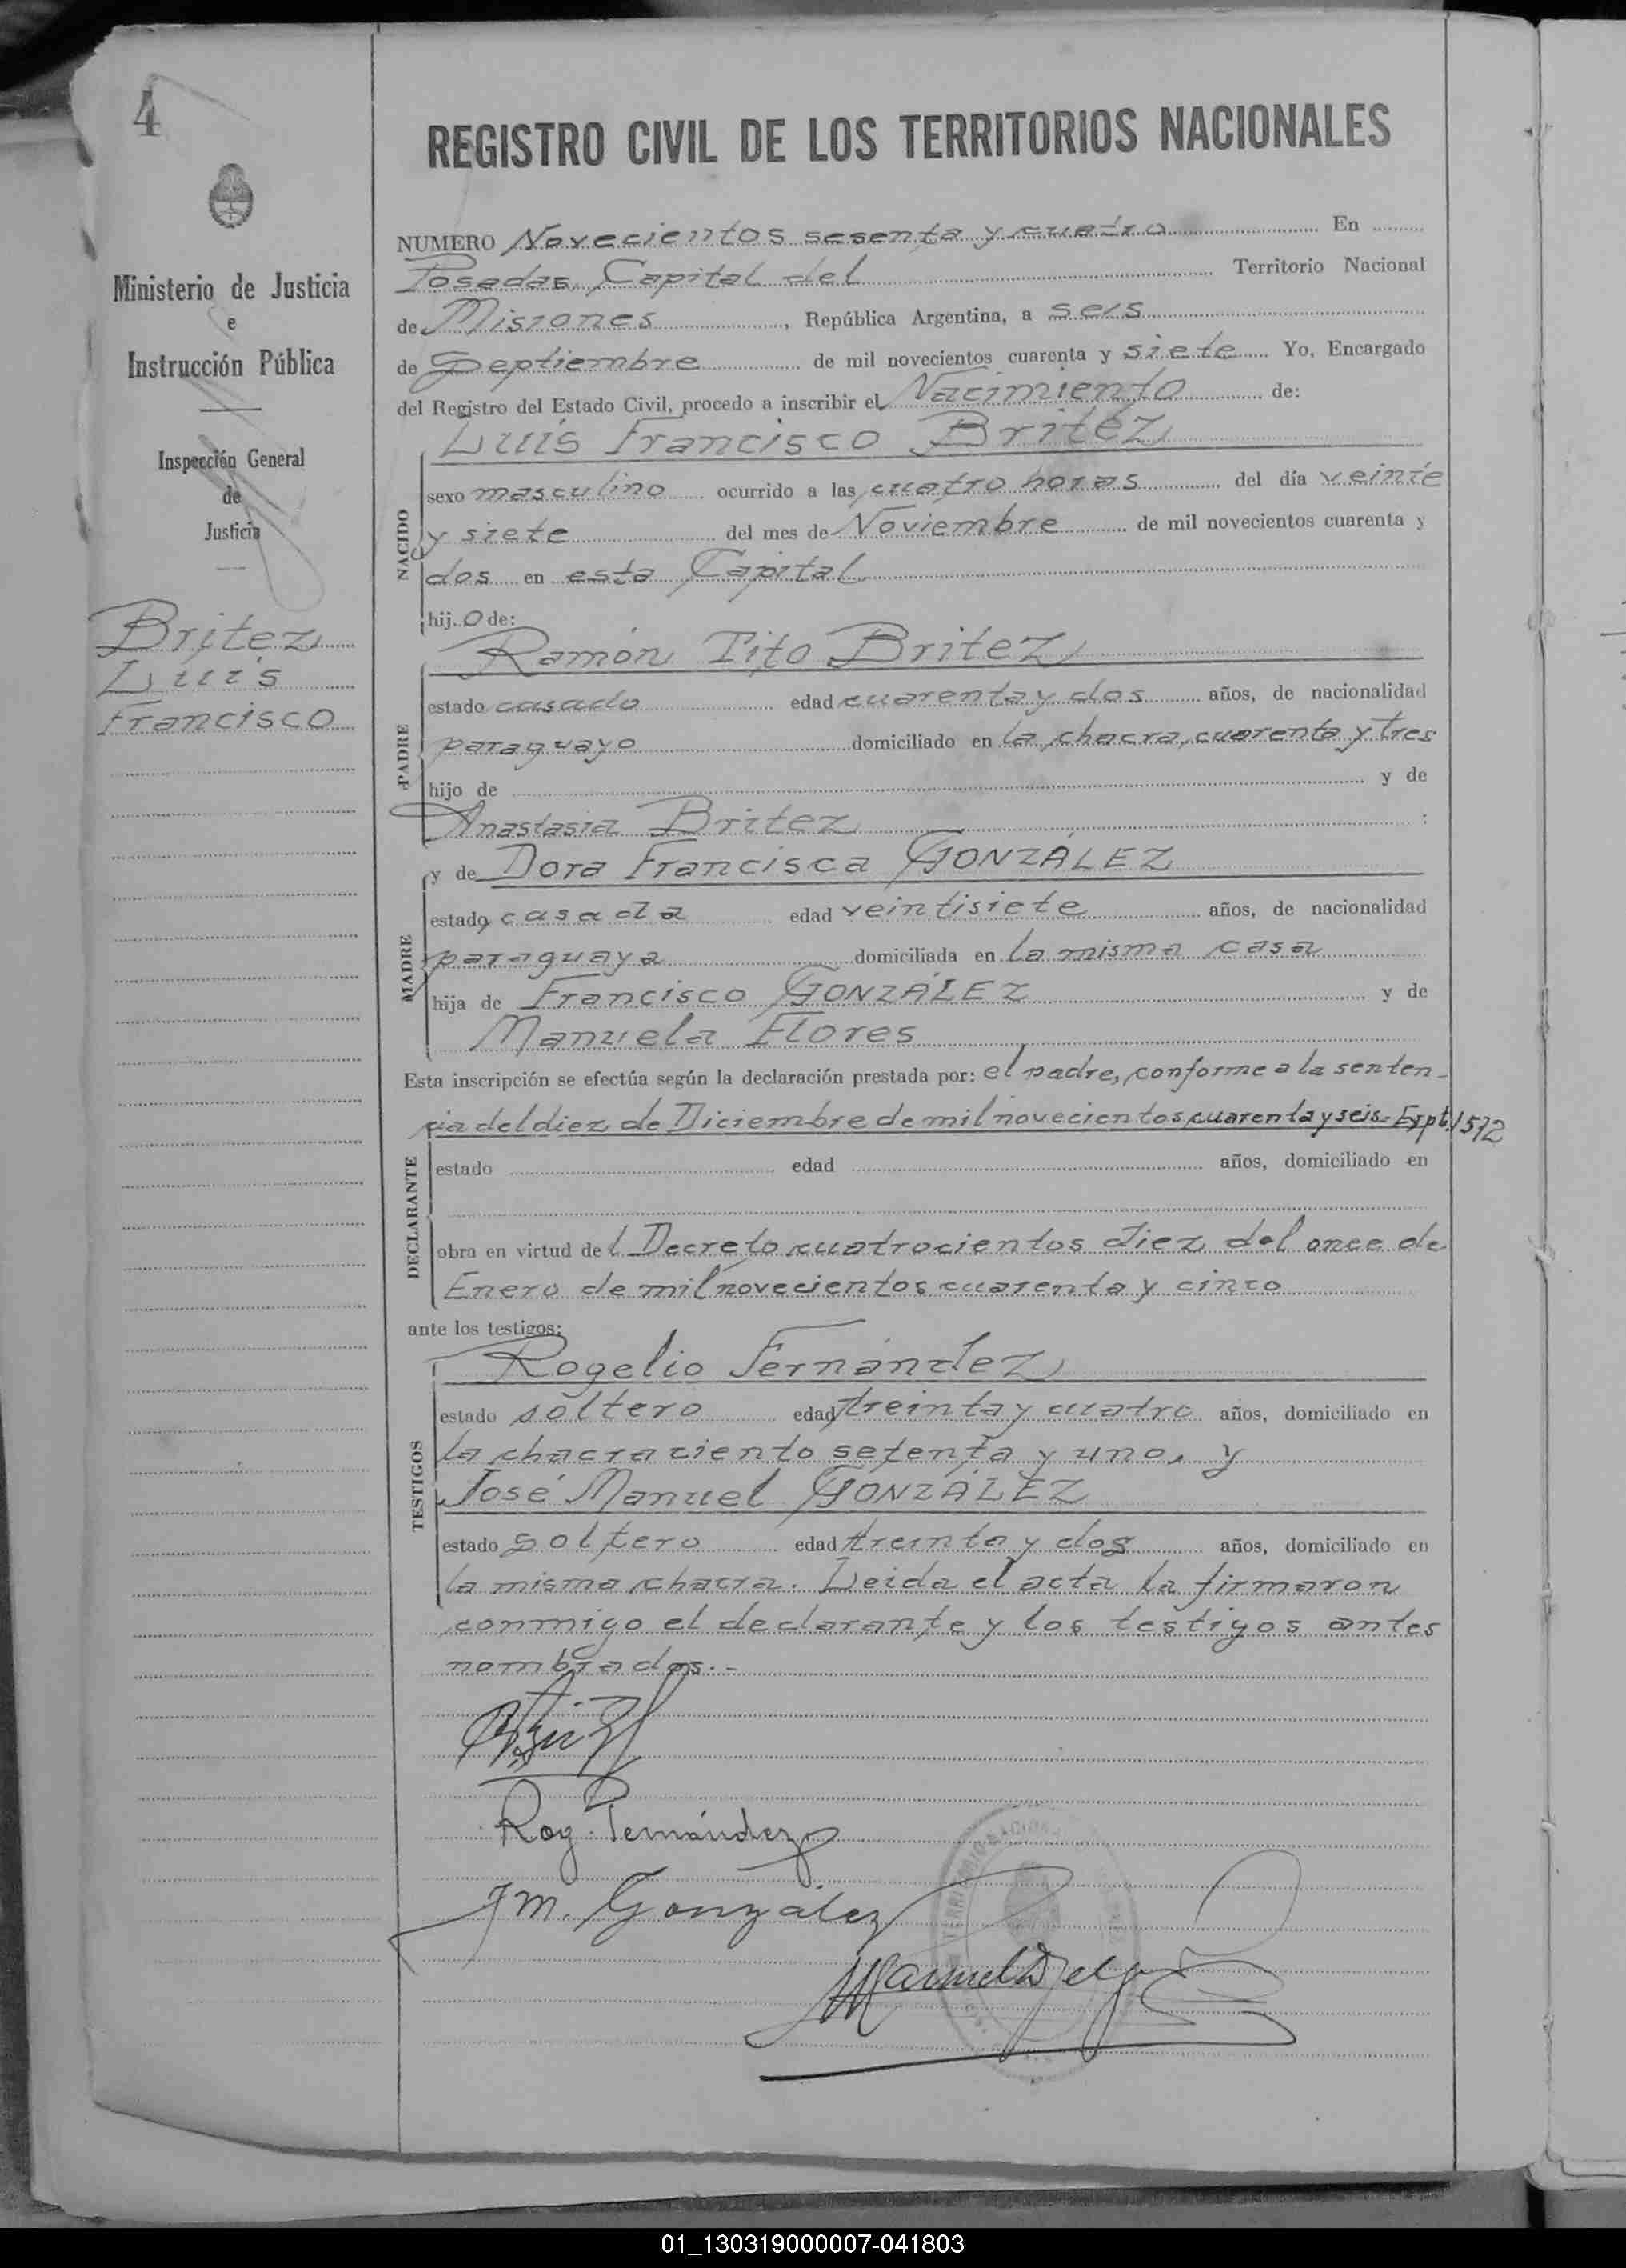 4
REGISTRO CIVIL DE LOS TERRITORIOS NACIONALES
Ministerio de Justicia
e
Instrucción Pública
Inspección General
de
Justicia
Britez
Luis
Francisco
NUMERO Novecientos sesenta y cuatro En
Posadas, Capital del Territorio Nacional
de Misiones, República Argentina, a seis
de Septiembre de mil novecientos cuarenta y siete Yo, Encargado
del Registro del Estado Civil, procedo a inscribir el Nacimiento de:
Luis Francisco Britez
NACIDO
sexo masculino ocurrido a las cuatro horas del día veinte
y siete del mes de Noviembre de mil novecientos cuarenta y
dos en esta Capital
hijo de:
Ramón Tito Britez
PADRE
estado casado edad cuarenta y dos años, de nacionalidad
paraguayo domiciliado en la chacra, cuarenta y tres
hijo de y de
Anastasia Britez :
y de Dora Francisca GONZÁLEZ
MADRE
estado casada edad veintisiete años, de nacionalidad
paraguaya domiciliada en la misma casa
hija de Francisco GONZÁLEZ y de
Manuela Flores
Esta inscripción se efectúa según la declaración prestada por: el padre, conforme a la senten-
cia del diez de Diciembre de mil novecientos cuarenta y seis- Expt. 1512
DECLARANTE
estado edad años, domiciliado en
obra en virtud del Decreto cuatrocientos diez del once de
Enero de mil novecientos cuarenta y cinco
ante los testigos:
Rogelio Fernández
TESTIGOS
estado soltero edad treinta y cuatro años, domiciliado en
la chacra ciento setenta y uno, y
José Manuel GONZÁLEZ
estado soltero edad treinta y dos años, domiciliado en
la misma chacra. Leida el acta la firmaron
conmigo el declarante y los testigos antes
nombrados.-
Rog. Fernández
J M. González
Manuel
01_130319000007-041803